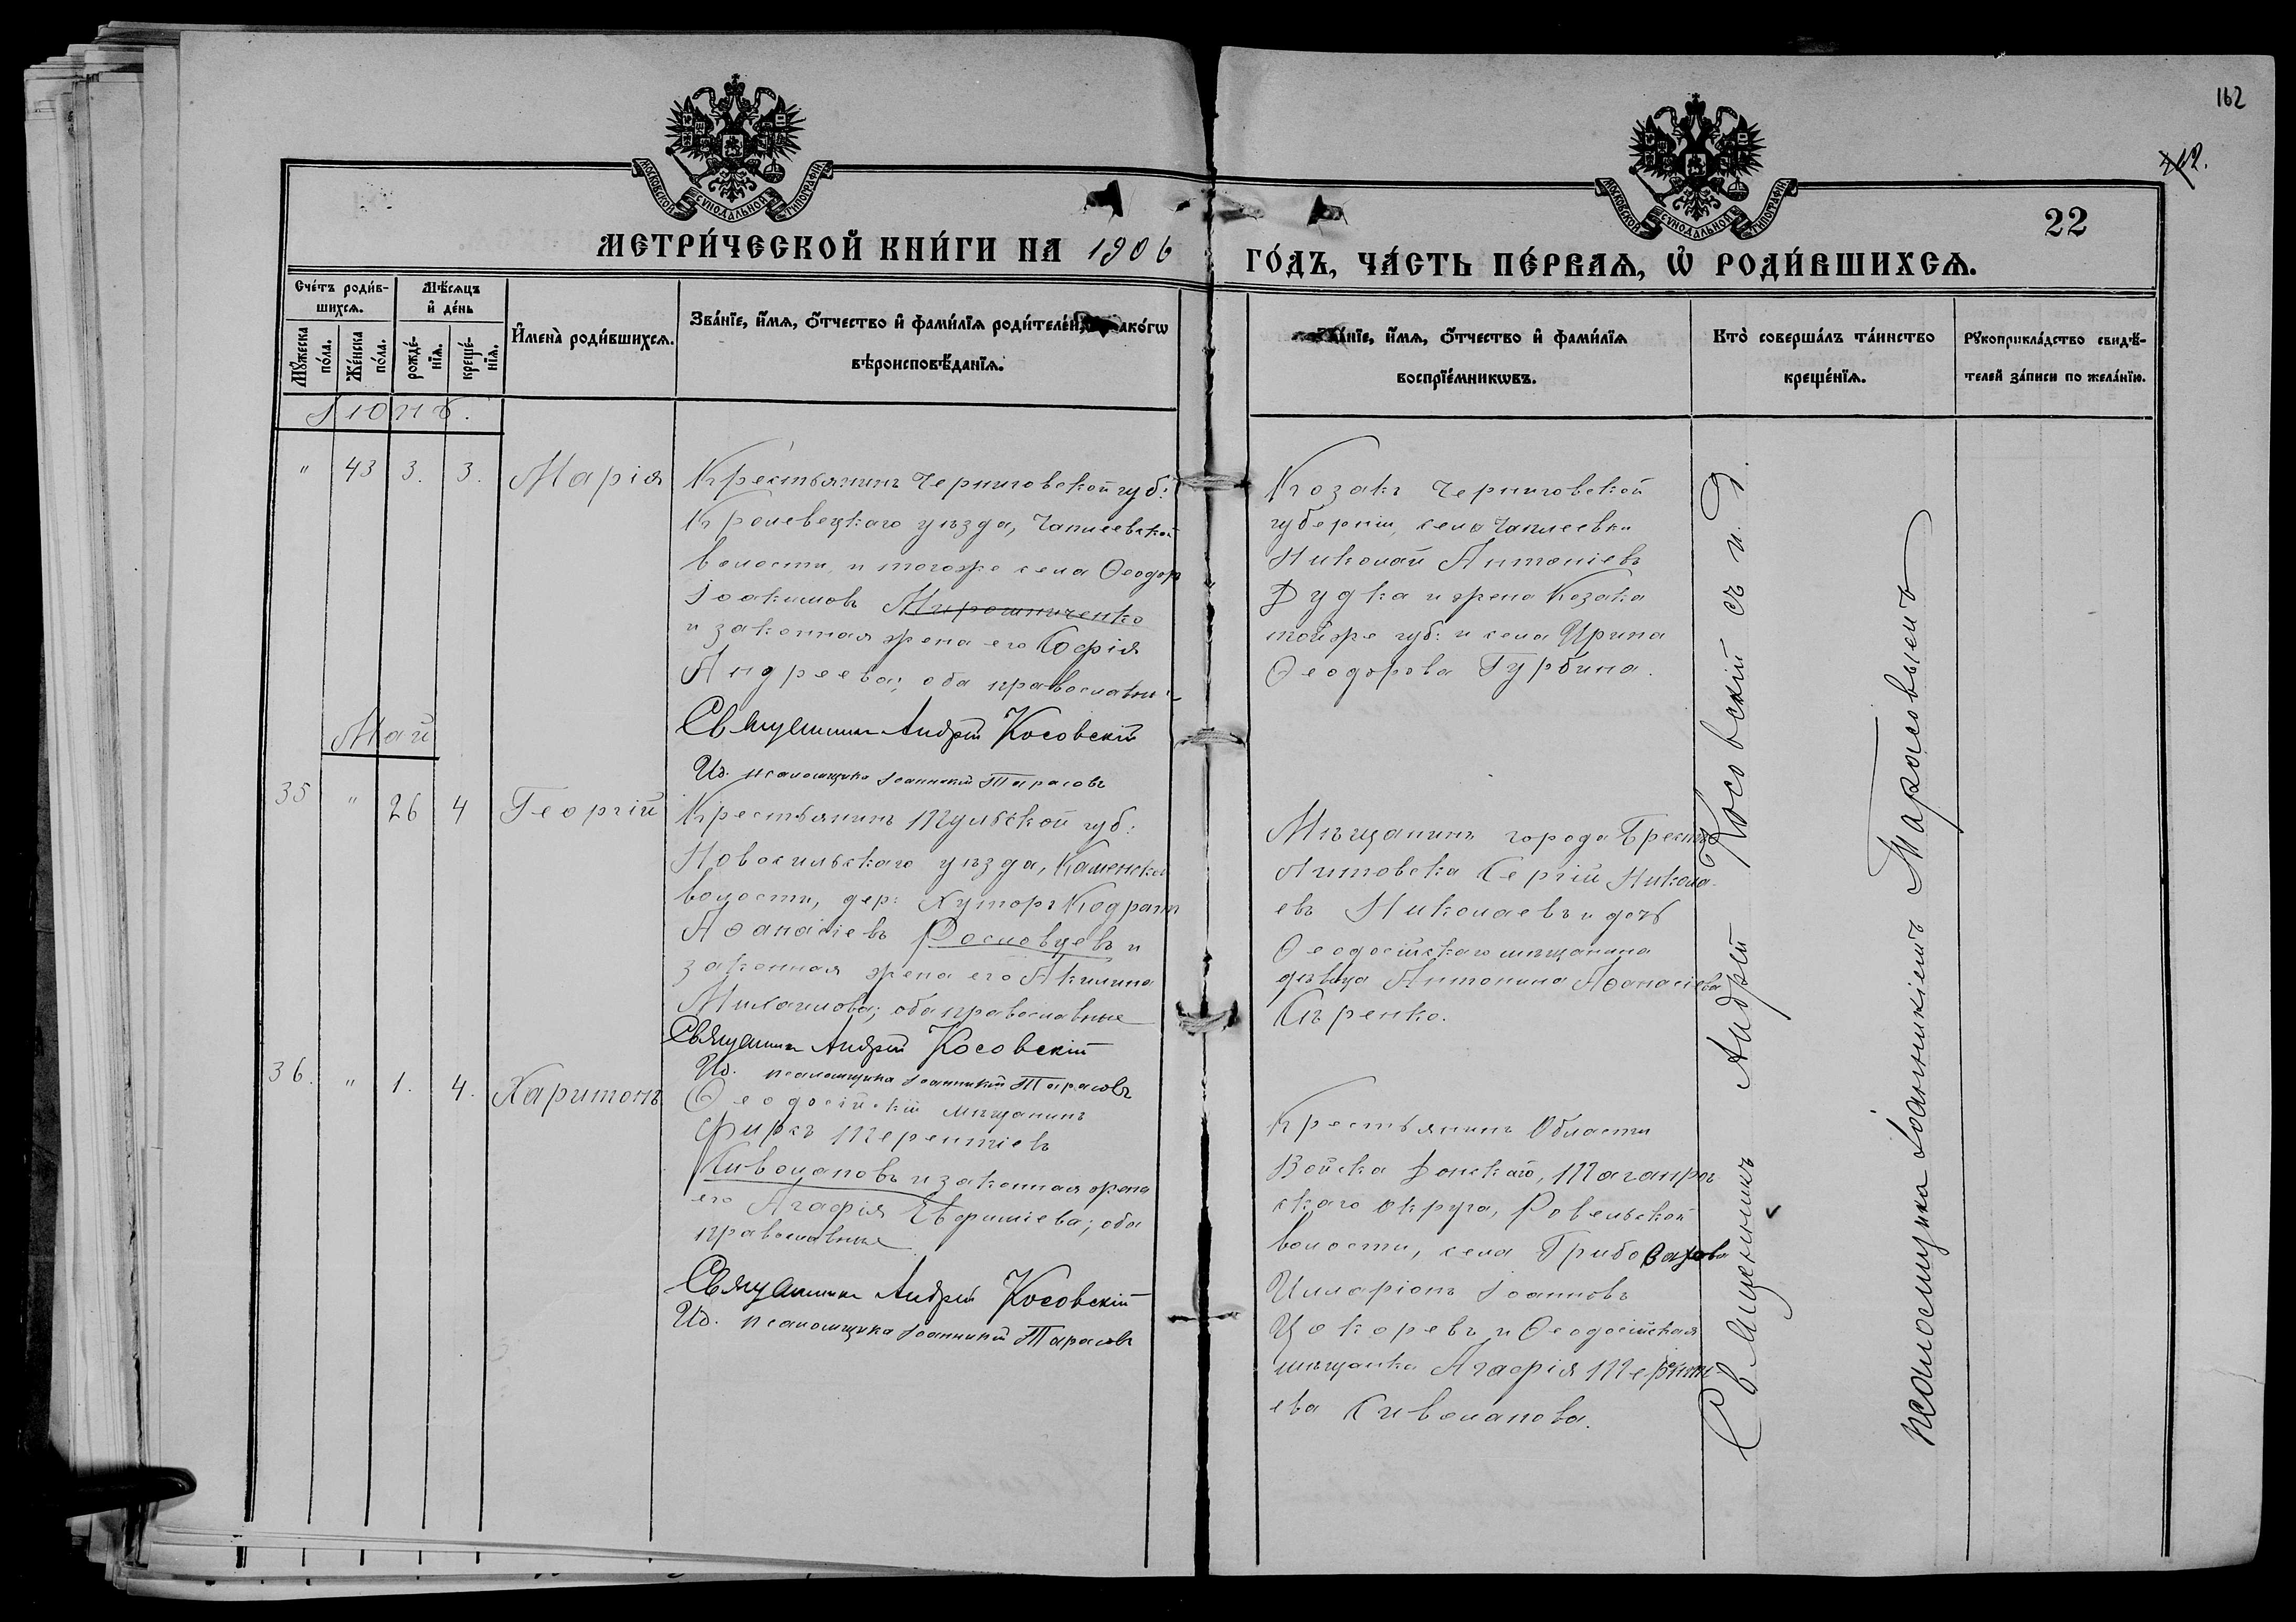 162
412.
22
МОСКОВСКОЙ СУНОДАЛЬНОЙ ТИПОГРАФІИ.
МОСКОВСКОЙ СУНОДАЛЬНОЙ ТИПОГРАФІИ.
МЕТРИ́ЧЕСКОЙ КНИ́ГИ НА 1906
ГО́ДЪ, ЧА́СТЬ ПЕ́РВАѦ, Ѡ҆ РОДИ́ВШИХСѦ.
Сче́тъ роди́в-
шихсѧ.
Мꙋ́жеска по́ла.
Же́нска по́ла.
Мѣ́сѧцъ
и҆ де́нь
рожде́-
нїѧ.
креще́-
нїѧ.
И҆мена̀ роди́вшихсѧ.
Зва́нїе, и҆́мѧ, ѻ҆́тчество и҆ фами́лїѧ роди́телей, и҆ како́гѡ
вѣроисповѣ́данїѧ.
Зва́нїе, и҆́мѧ, ѻ҆́тчество и҆ фами́лїѧ
воспрїе́мникѡвъ.
Кто̀ соверша́лъ та́инство
креще́нїѧ.
Рꙋкоприкла́дство свидѣ́-
телей за́писи по жела́нїю.
Іюнь.
" 43 3. 3. Марія
Крестьянинъ Черниговской губ:
Кролевецкаго уѣзда, Чаплеевской
волости, и тогоже села Ѳеодоръ
Іоакимовъ Мирошниченко
и законная жена его Софія
Андреева; оба православные
Священникъ Андрей Косовскій
И.д. псаломщика Іоанникій Тарасовъ
Козакъ Черниговской
губерніи, села Чаплеевки
Николай Антоніевъ
Дудка и жена Козака
тойже губ: и села Ирина
Ѳеодорова Гурбина.
Май
35 " 26 4 Георгій
Крестьянинъ Тульской губ:
Новосильскаго уѣзда, Каменской
волости, дер: Хуторъ Кодратъ
Аѳанасіевъ Рословцевъ и
законная жена его Акилина
Михаилова; оба православные
Священникъ Андрей Косовскій
И.д. псаломщика Іоанникій Тарасовъ
Мѣщанинъ города Брестъ
Литовска Сергій Никола-
евъ Николаевъ и дочь
Ѳеодосійскаго мѣщанина
дѣвица Антонина Аѳанасіева
Сѣренко.
36. " 1. 4. Харитонъ
Ѳеодосійскій мѣщанинъ
Фирсъ Терентіевъ
Сиволаповъ и законная жена
его Агафія Евфиміева; оба
православные
Священникъ Андрей Косовскій
И.д. псаломщика Іоанникій Тарасовъ
Крестьянинъ Области
Войска Донскаго, Таганрог-
скаго округа, Ровельской
волости, села Грибовахова
Илларіонъ Іоанновъ
Цокоревъ и Ѳеодосійская
мѣщанка Агафія Терент-
ева Сиволапова.
Священникъ Андрей Косовскій съ и.д.
псаломщика Іоанникіемъ Тарасовымъ